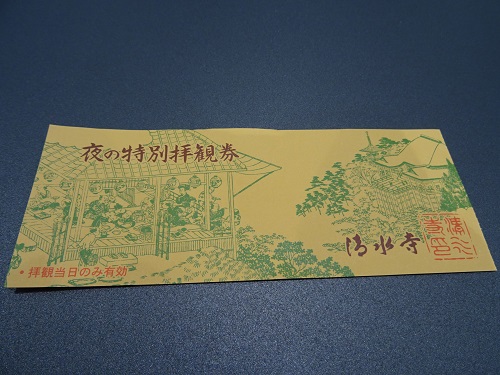 夜の特別拝観券
清水寺
*拝観当日のみ有効